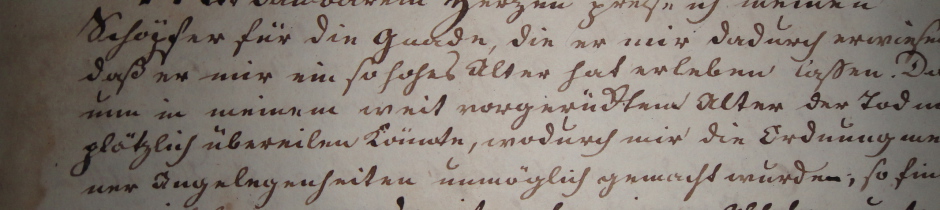 dankbarem Herzen preise ich meinen
Schöpfer für die Gnade, die er mir dadurch erwiesen
daß er mir ein so hohes Alter hat erleben lassen. Da
nun in meinem weit vorgerückten Alter der Tod m
plötzlich übereilen könnte, wodurch mir die Ordnung me
ner Angelegenheiten unmöglich gemacht wurde, so fin